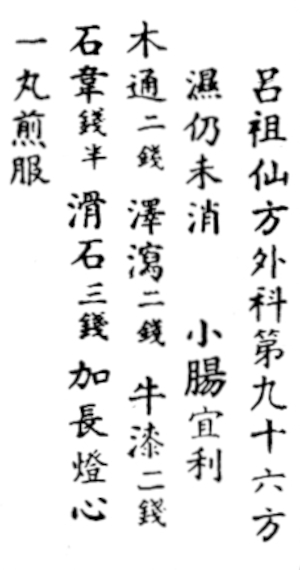 呂祖仙方外科第九十六方
濕仍未消 小腸宜利
木通二錢 澤瀉二錢 牛漆二錢
石韋錢半 滑石三錢 加長燈心
一丸煎服